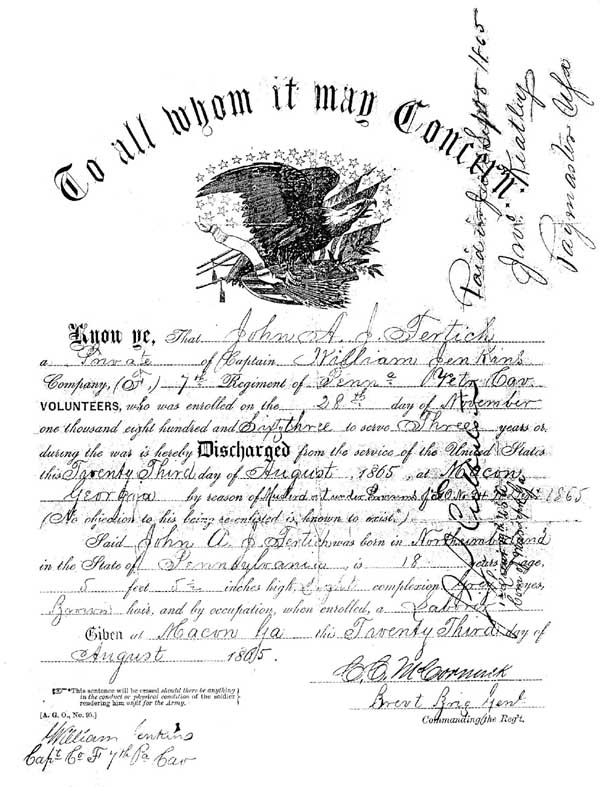 To all whom it may Concern:
Know ye, That John A. J. Fertich
a Private of Captain William Jenkins
Company, (F,) 7th Regiment of Penna Vetr Cav.
VOLUNTEERS, who was enrolled on the 28th day of November
one thousand eight hundred and Sixty three to serve Three years or
during the war is hereby Discharged from the service of the United States
this Twenty Third day of August 1865, at Macon
Georgia by reason of 1865
(No objection to his being re-enlisted is known to exist.*)
Said John A. J. Fertich was born in Northumberland
in the State of Pennsylvania is 18 years of age,
5 feet inches high, Light complexion, eyes,
Brown hair, and by occupation, when enrolled, a Laborer
Given at Macon Ga this Twenty Third day of
August 1865.
C. C. McCormick
Brevt Brig Genl
Commanding the Reg't.
*This sentence will be erased should there be anything
in the conduct or physical condition of the soldier
rendering him unfit for the Army.
[A. G. O., No. 95.]
William Jenkins
Capt Co F 7th Pa Cav
Paid in Sept 8 1865
Jno. Keatley
Paymaster USA